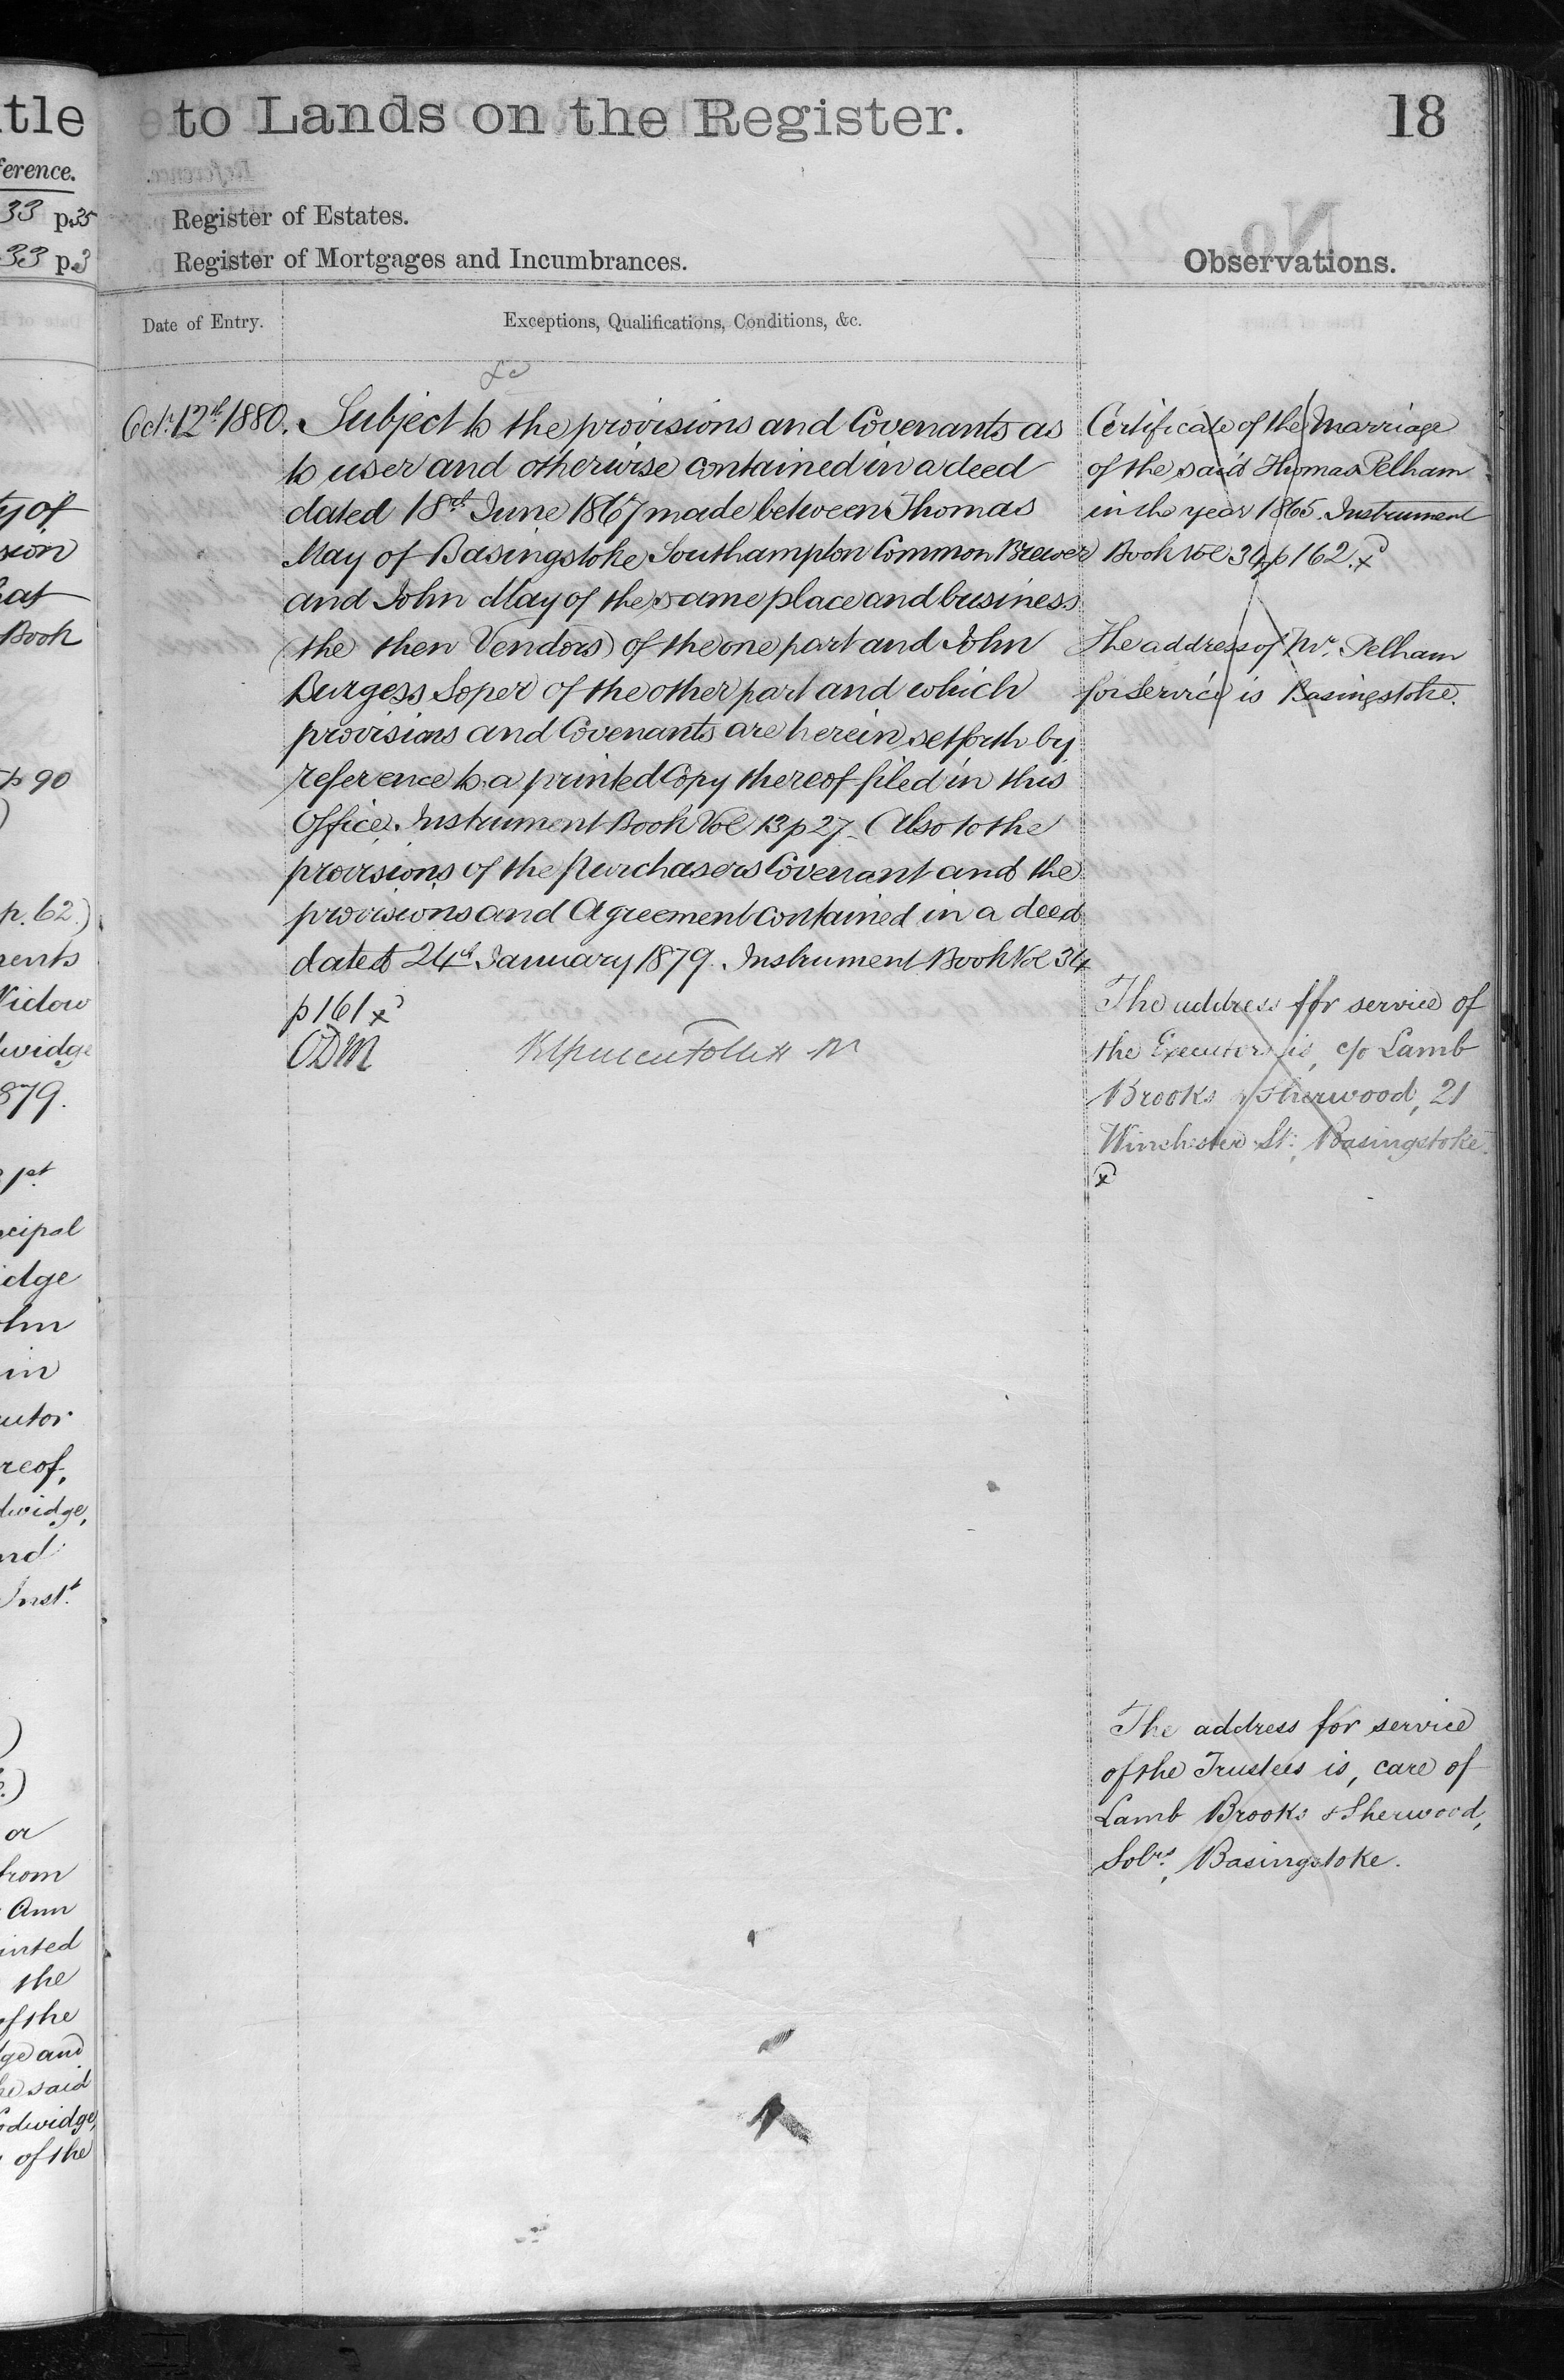 tle
to Lands on the Register.
18
ference.
33 p 35
33 p 3
Register of Estates.
Register of Mortgages and Incumbrances.
Observations.
Date of Entry.
Exceptions, Qualifications, Conditions, &c.
Oct: 12th 1880. Subject to the provisions and Covenants as
to user and otherwise contained in a deed
dated 18th June 1867 made between Thomas
May of Basingstoke Southampton Common Brewer
and John May of the same place and business
(the then Vendors) of the one part and John
Burgess Soper of the other part and which
provisions and Covenants are herein set forth by
reference to a printed Copy thereof filed in this
Office. Instrument Book Vol 13 p 27. Also to the
provisions of the Purchasers Covenant and the
provisions and Agreement contained in a deed
dated 24th January 1879. Instrument Book Vol 34
p 161 x
ODM
Certificate of the Marriage
of the said Thomas Pelham
in the year 1865. Instrument
Book Vol 34 p 162. x
The address of Mr. Pelham
for Service is Basingstoke.
The address for service of
the Executors is, c/o Lamb
Brooks & Sherwood, 21
Winchester St:, Basingstoke.
x
The address for service
of the Trustees is, care of
Lamb Brooks & Sherwood,
Solrs, Basingstoke.
ty of
sion
hat
Book
p 90
p. 62.)
ments
Widow
dwidge
879.
1st
ncipal
idge
ohn
in
cutor
reof,
dwidge,
nd
Inst.
or
from
Ann
inted
the
of the
dge and
he said
odwidge,
of the